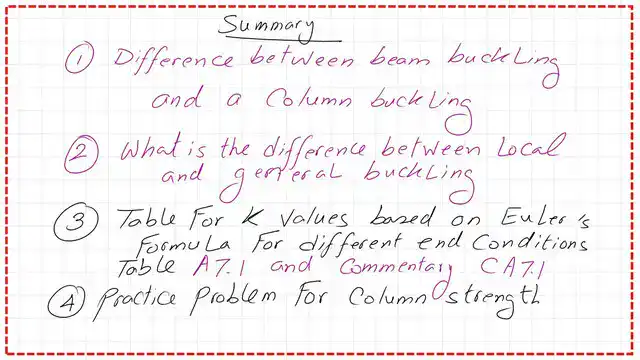 Summary
① Difference between beam buckling
and a Column buckling
② What is the difference between Local
and general buckling
③ Table For K Values based on Euler's
Formula For different end Conditions
Table A7.1 and Commentary CA7.1
④ Practice Problem For Column strength